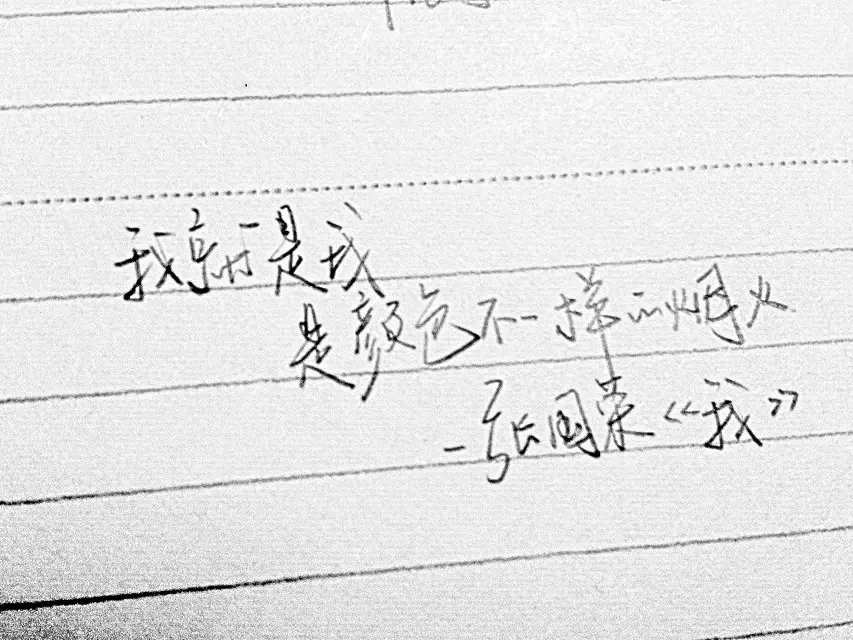 我就是我
是颜色不一样的烟火
-张国荣《我》